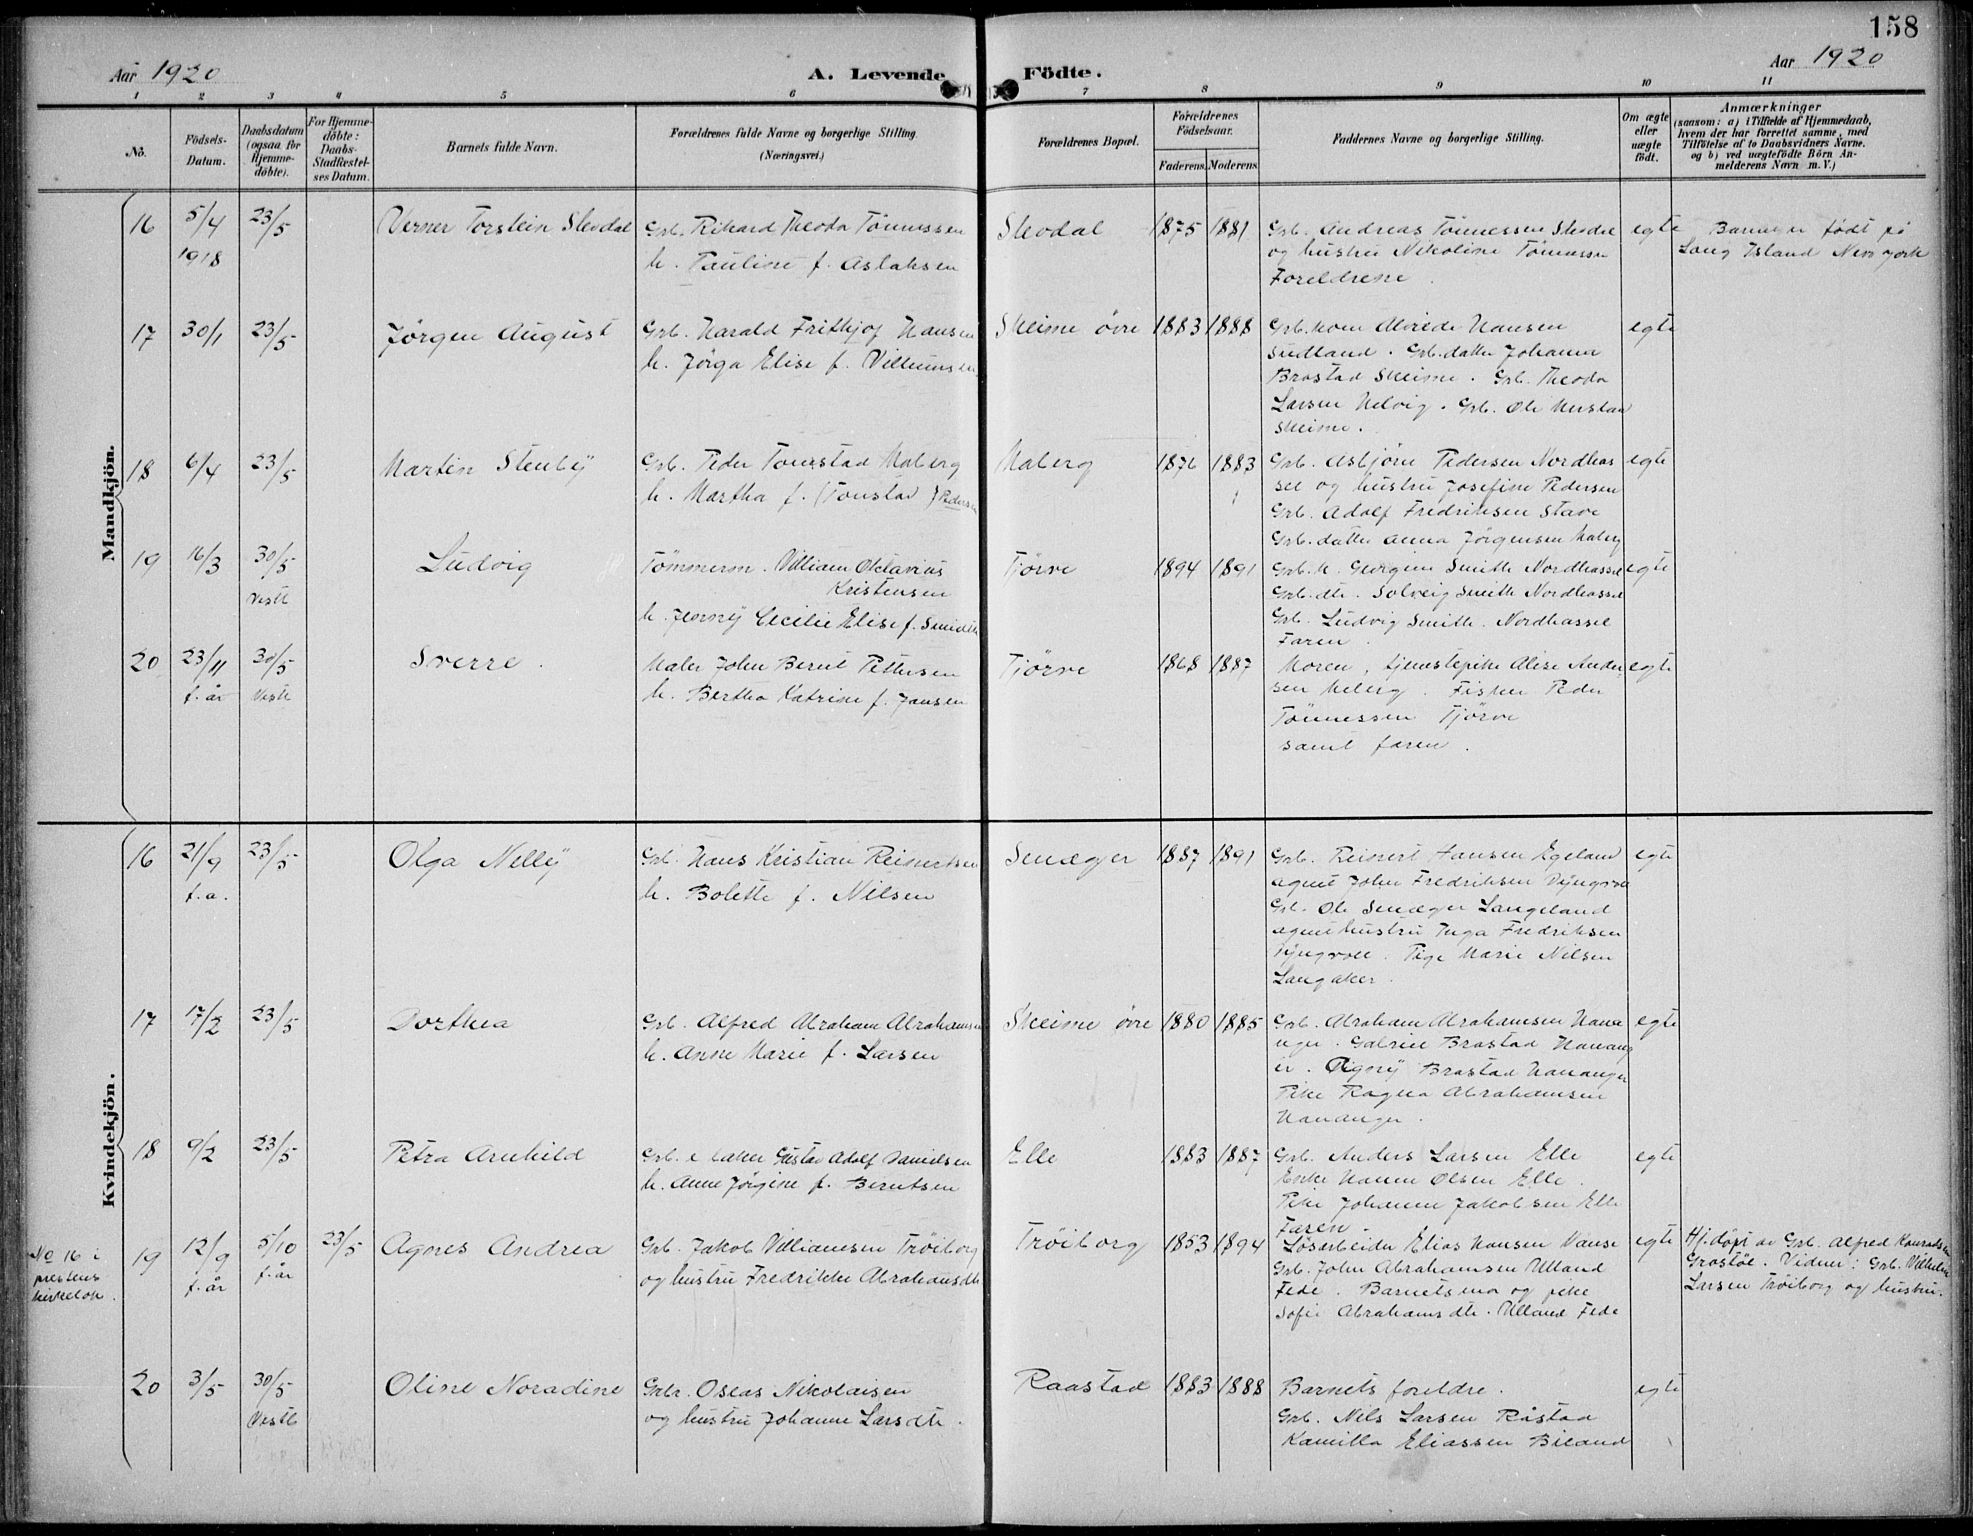 158
Aar 1920
A. Levende Födte.
Aar 1920
1 2 3 4 5 6 7 8 9 10 11
No.
Födsels-Datum.
Daabsdatum (ogsaa for Hjemme-döbte).
For Hjemme-döbte: Daabs-Stadfæstel-ses Datum.
Barnets fulde Navn.
Forældrenes fulde Navne og borgerlige Stilling.
(Næringsvei.)
Forældrenes Bopæl.
Forældrenes Födselsaar.
Faderens. Moderens.
Faddernes Navne og borgerlige Stilling.
Om ægte eller uægte födt.
Anmærkninger
(saasom: a) i Tilfælde af Hjemmedaab,
hvem der har forrettet samme, med
Tilföielse af to Daabsvidners Navne.
og b) ved uægtefödte Börn An-
melderens Navn m. V.)
Mandkjön.
16 5/4 1918 23/5 Verner Torstein Slevdal
Grb. Rikard Theodor Tönnessen
h. Pauline f. Aslaksen
Slevdal 1875 1881
Grb. Andreas Tönnessen Slevdal
og hustru Nikoline Tönnessen
Foreldrene
egte
Barnet er födt på
Long Island New York
17 30/1 23/5 Jörgen August
Grb. Harald Frithjof Hansen
h. Jörga Elise f. Villumsen
Skeime övre 1883 1888
Grb. kone Alvilde Hansen
Sudland. Grb. datter Johanna
Brastad Skeime. Grb. Theodor
Larsen Helvig. Grb. Ole
Skeime.
egte
18 6/4 23/5 Martin Stenby
Grb. Peder Tonstad Maberg
h. Martha f. (Tonstad) Pedersen
Maberg 1876 1883
Grb. Asbjörn Pedersen Nordhas
sel og hustru Josefine Pedersen
Grb. Adolf Fredriksen Stave
Grb. datter Anna Jörgensen Maberg
egte
19 16/3 30/5 Vestb Ludvig
Tömmerm. Villiam Oktavius
Kristensen
h. Jenny Cecilie Elise f. Smidth
Tjörve 1894 1891
Grb. h. Georgine Smith Nordhassel
Grb. dtr. Solveig Smith Nordhassel
Grb. Ludvig Smith. Nordhassel
Faren.
egte
20 23/11 f. år 30/5 Vestb Sverre.
Maler John Bernt Pettersen
h. Bertha Katrine f. Jansen
Tjörve 1868 1887
Moren, tjenestepike Alise Ander-
sen Meberg. Fisker Peder
Tönnessen Tjörve
samt faren.
egte
Kvindekjön.
16 21/9 f. a. 23/5 Olga Nelly
Grb. Hans Kristian Reinertsen
h. Bolette f. Nilsen
Snæger 1887 1891
Grb. Reinert Hansen Egeland
agent John Fredriksen Vyngvoll
Grb. Ole Snæger Langeland
agent hustru Inga Fredriksen
Vyngvoll. Pige Marie Nilsen
Langaker.
egte
17 17/2 23/5 Dorthea
Grb. Alfred Abraham Abrahamsen
h. Anne Marie f. Larsen
Skeime övre 1880 1885
Grb. Abraham Abrahamsen Hana
nger. Gabriel Brastad Hanang
er. Signy Brastad Hananger
Pike Ragna Abrahamsen
Hananger.
egte
18 9/2 23/5 Petra Arnhild
Grb. Gustav Adolf Danielsen
h. Anne Jörgine f. Berntsen
Elle 1883 1887
Grb. Anders Larsen Elle
Enke Hanne Olsen Elle.
Pike Johanne Jakobsen Elle
Faren.
egte
No 16 i
prestens
kirkebok.
19 12/9 f. år 5/10 f. år 23/5 Agnes Andrea
Grb. Jakob Villiamsen Tröiborg
og hustru Fredrikke Abrahamsdtr
Tröiborg 1853 1894
Lösarbeider Elias Hansen Vanse
Grb. John Abrahamsen Ulland
Fede. Barnets mor og pike
Sofie Abrahamsdtr. Ulland Fede
egte
Hj. döpt av Grb. Alfred Konradsen
Grostöl. Vidner: Grb. Vilhelm
Larsen Tröiborg og hustru.
20 3/5 30/5 Vestb Oline Noradine
Grbr. Oseas Nikolaisen
og hustru Johanne Larsdtr.
Raastad 1883 1888
Barnets foreldre.
Grb. Nils Larsen Råstad
Kamilla Eliassen Biland
egte